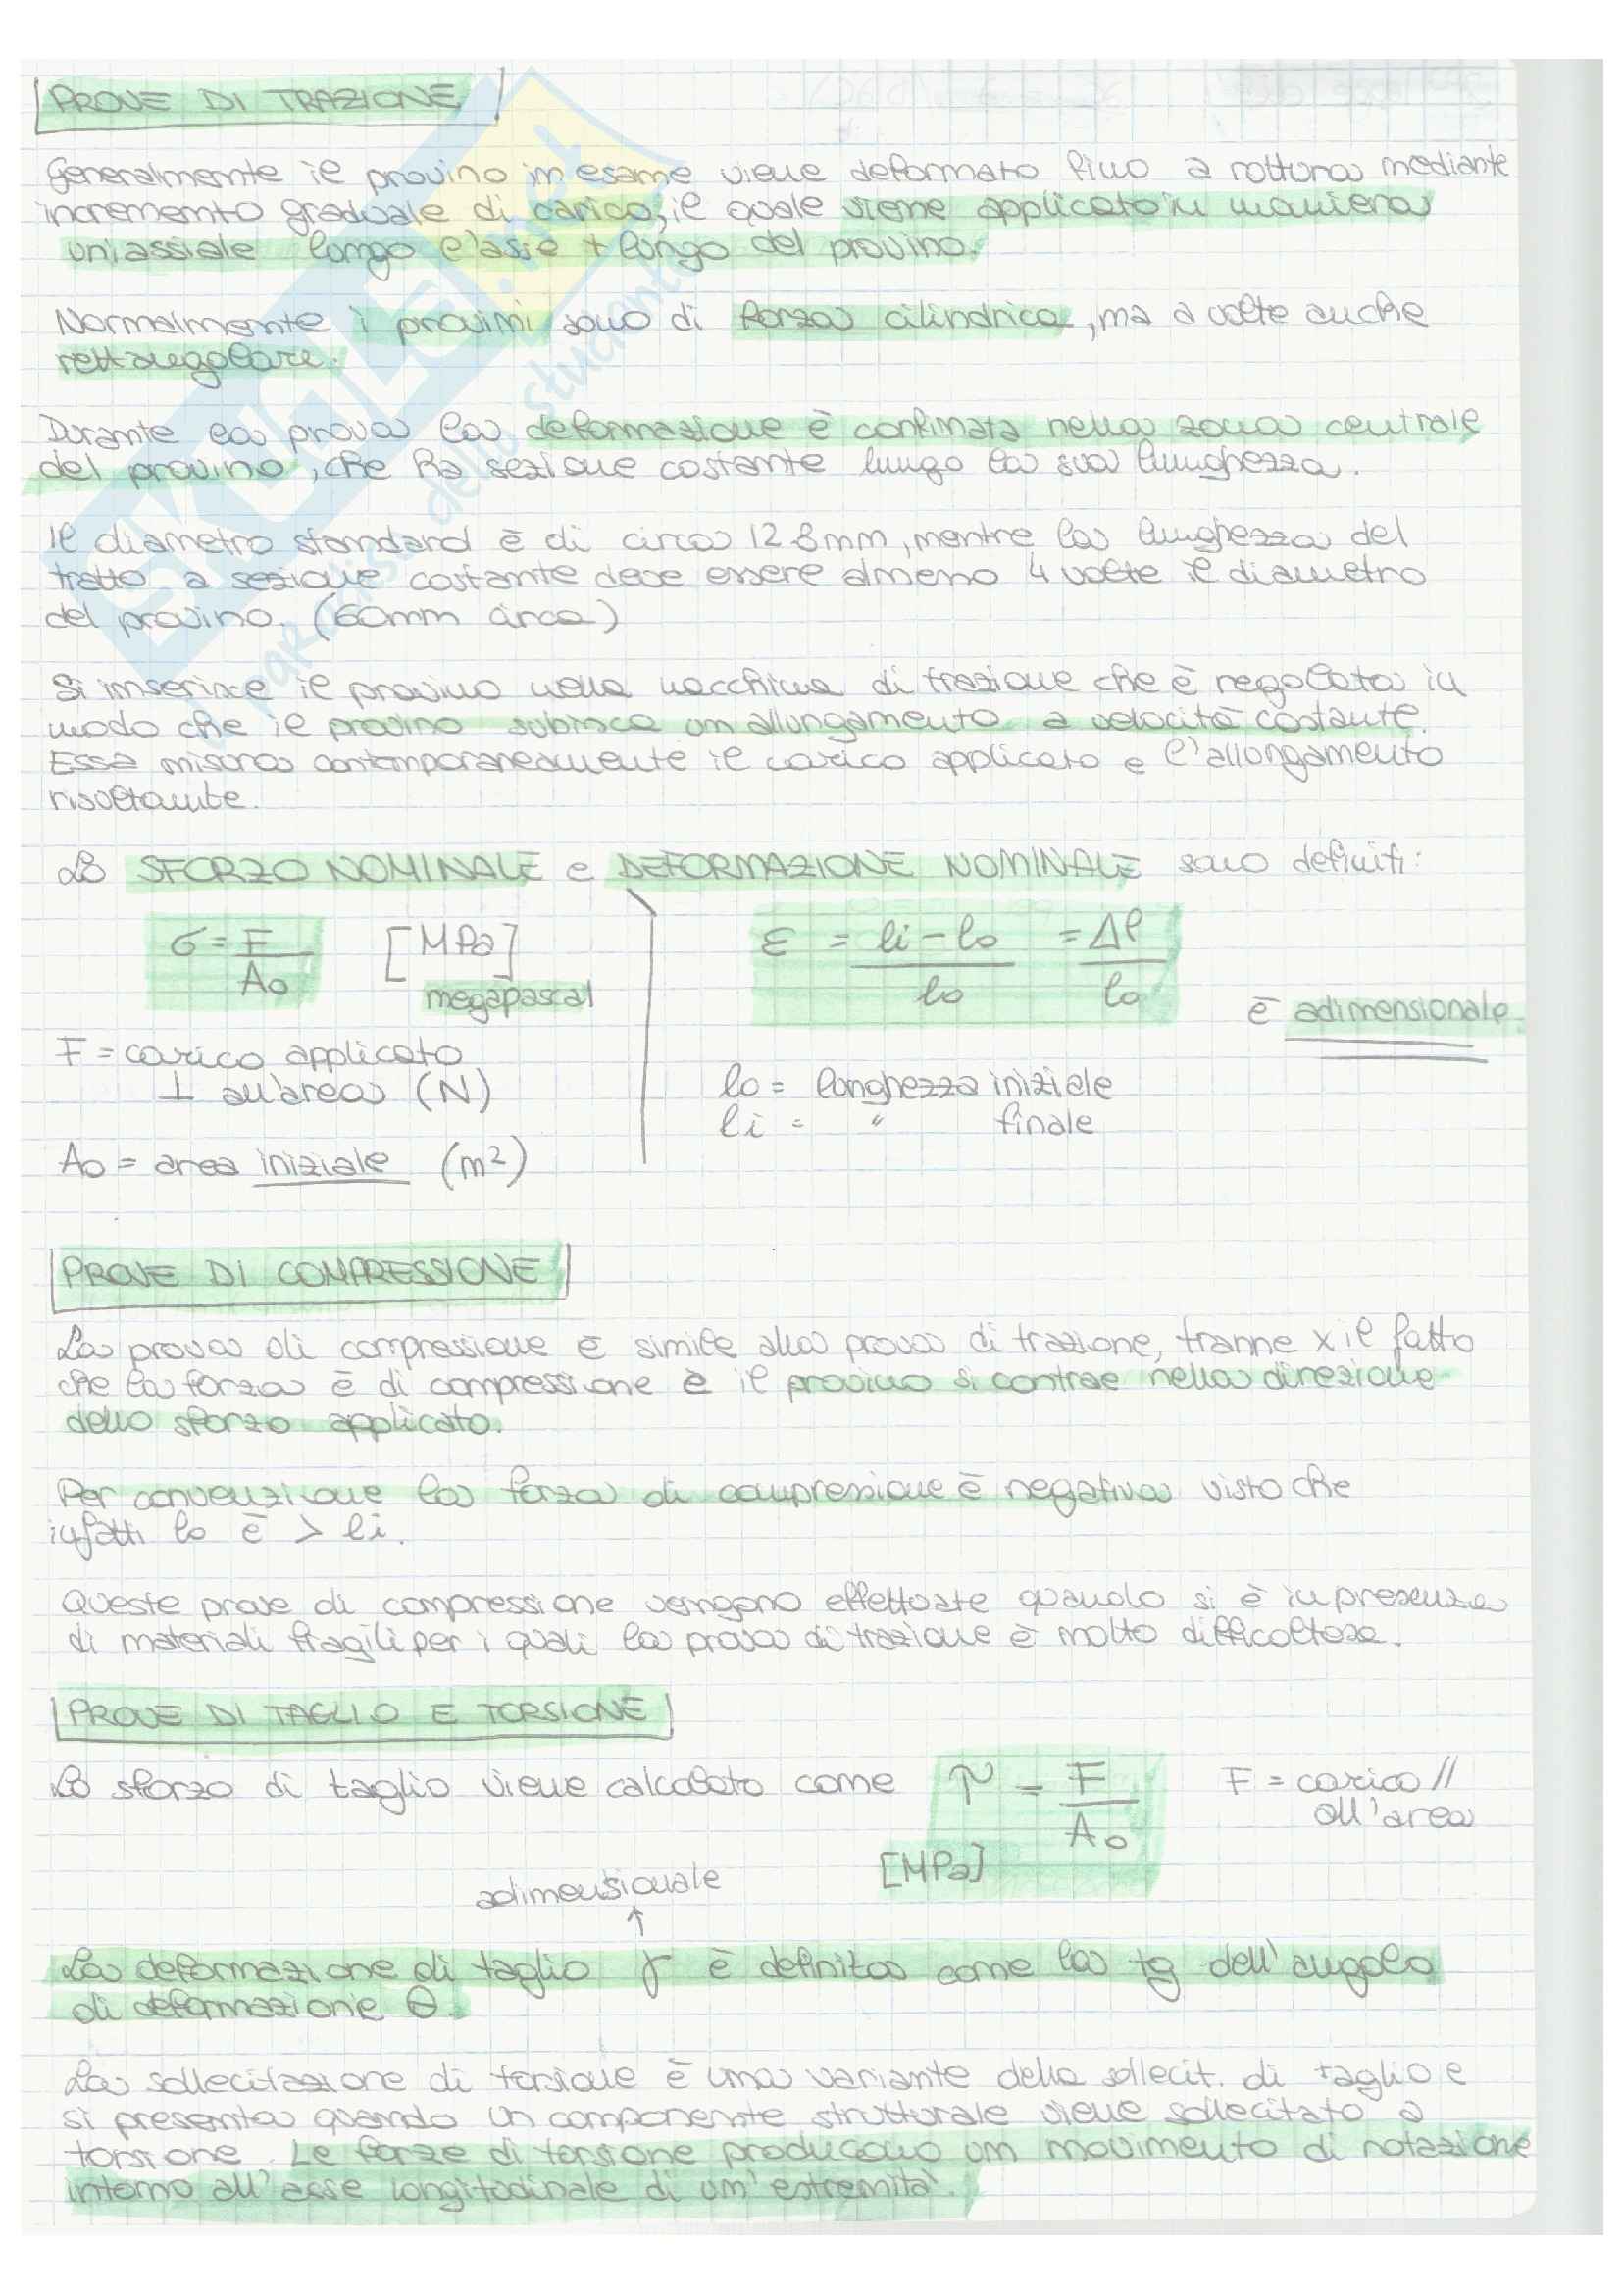 PROVE DI TRAZIONE
Generalmente il provino in esame viene deformato fino a rottura mediante
incremento graduale di carico, il quale viene applicato in maniera
uniassiale lungo l'asse + lungo del provino.
Normalmente i provini sono di forza cilindrica, ma a volte anche
rettangolare.
Durante la prova la deformazione è confinata nella zona centrale
del provino, che ha sezione costante lungo la sua lunghezza.
Il diametro standard è di circa 12.8mm, mentre la lunghezza del
tratto a sezione costante deve essere almeno 4 volte il diametro
del provino. (60mm circa)
Si inserisce il provino nella macchina di trazione che è regolata in
modo che il provino subisca un allungamento a velocità costante.
Essa misura contemporaneamente il carico applicato e l'allungamento
risultante.
Lo SFORZO NOMINALE e DEFORMAZIONE NOMINALE sono definiti:
σ = F / A₀ [MPa] ε = li - l₀ / l₀ = Δl / l₀
megapascal
è adimensionale.
F = carico applicato
⊥ all'area (N)
l₀ = lunghezza iniziale
li = " finale
A₀ = area iniziale (m²)
PROVE DI COMPRESSIONE
La prova di compressione è simile alla prova di trazione, tranne x il fatto
che la forza è di compressione è il provino si contrae nella direzione
dello sforzo applicato.
Per convenzione la forza di compressione è negativa visto che
infatti l₀ è > li.
Queste prove di compressione vengono effettuate quando si è in presenza
di materiali fragili per i quali la prova di trazione è molto difficoltosa.
PROVE DI TAGLIO E TORSIONE
Lo sforzo di taglio viene calcolato come τ = F / A₀ F = carico //
all'area
[MPa]
adimensionale
↑
La deformazione di taglio γ è definita come la tg dell'angolo
di deformazione θ.
La sollecitazione di torsione è una variante della sollecit. di taglio e
si presenta quando un componente strutturale viene sollecitato a
torsione. Le forze di torsione producono un movimento di rotazione
intorno all'asse longitudinale di un'estremità.